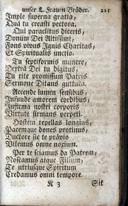 unser L. Frauen Brüder. 221
Imple superna gratia,
Quæ tu creasti pectora.
Qui paraclitus diceris,
Donum Dei Altissimi,
Fons vivus Ignis Charitas,
Et Spiritalis unctio.
Tu septiformis munere,
Dextræ Dei tu digitus,
Tu rite promissum Patris
Sermone Ditans guttura.
Accende lumen sensibus,
Infunde amorem cordibus,
Infirma nostri corporis
Virtute firmans perpeti.
Hostem repellas longius,
Pacemque dones protinus,
Ductore sic te prævio
Vitemus omne noxium.
Per te sciamus da Patrem,
Noscamus atque Filium,
Te utriusque Spiritum
Credamus omni tempore.
K 3 Sit